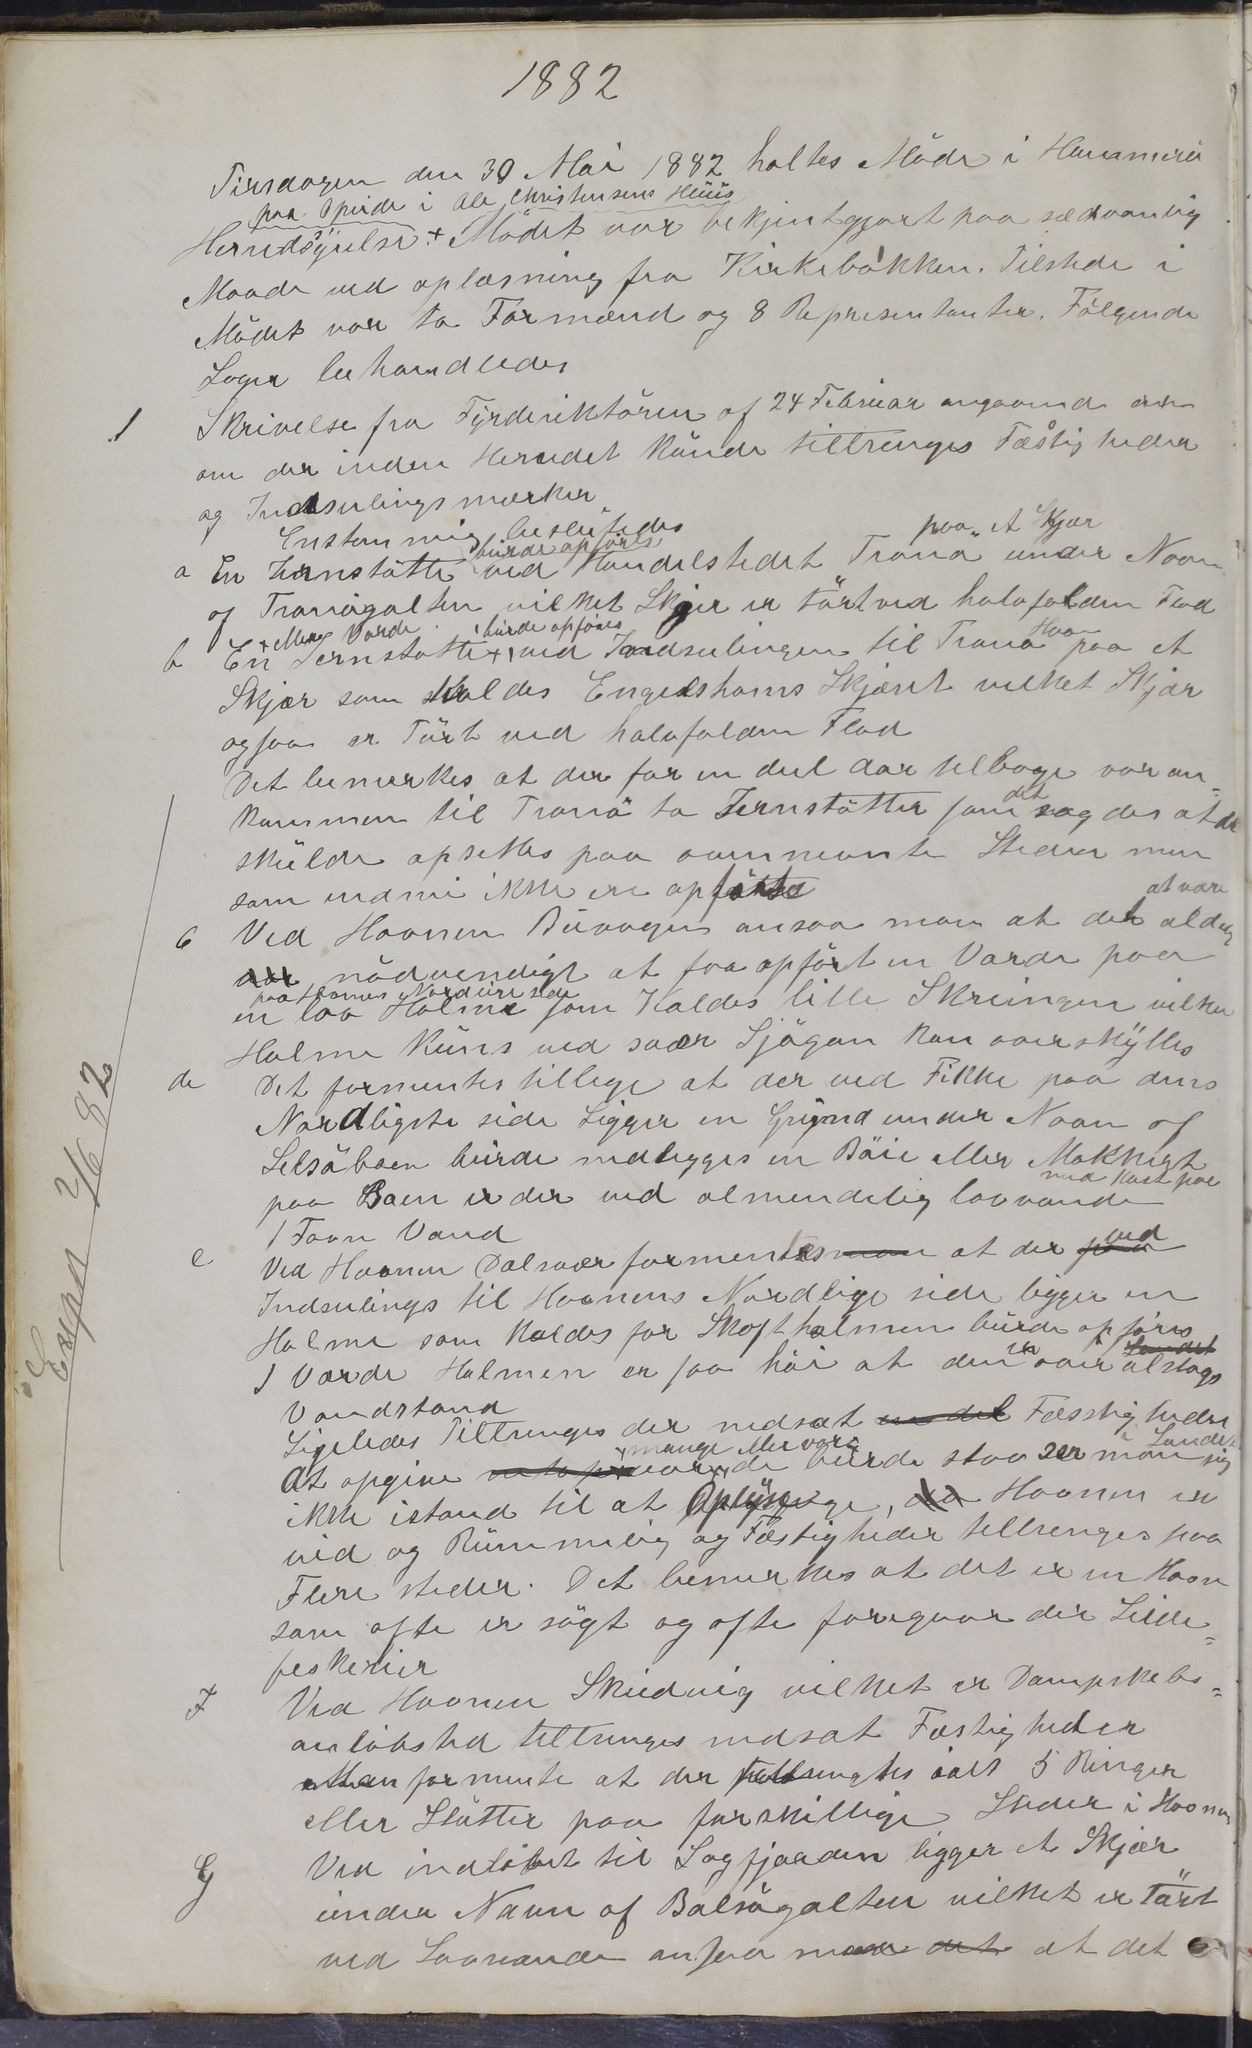 1882
Tirsdagen den 30 Mai 1882 holtes Möde i Hammerö
paa Speide i Ole Christensens Hüüs
Herredsstyrelse + Mödet var bekjentgjort paa sædvanlig
Maade ved oplæsning fra Kirkebakken. Tilstede i
Mödet var to Formænd og 8 Representanter. Fölgende
Sager behandledes
1 Skrivelse fra Fyrdirektören af 24 Februar angaaende
om der inden Herredet künde tiltrenges Fæstigheder
og Indseilingsmærker
Enstemmig besluttedes
bürde opföres paa et Skjær
a En Jernstötte ved Handelstedet Tranö under Navn
af Tranögalten vilket Skjer er tört ved halvfalden Flod
+ eller Varde bürde opföres
b En Jernstötte + ved Indseilingen til Tranö Havn paa et
Skjær som kaldes Engelshavns Skjæret vilket Skjær
ogsaa er Tört ved halvfalden Flod
Det bemerkes at der for en deel Aar tilbage var an=
kommen til Tranö to Jernstötter som det sagdes at de
skülde opsettes paa ovennevnte Steder men
som endnü ikke er opförte
at være
c Ved Havnen Büvaagen ansaa man at det aldeles
var nödvendigt at faa opfört en Varde paa
paa Havnens Nordvære side
en lav Holme som Kaldes lille Skreingen vilken
Holme Küns ved svær Sjögan kan overskylles
de Det formentes tillige at der ved Fikke paa dens
Nordligste side Ligger en Gründ under Navn af
Selsöboen bürde nedlegges en Böie eller Mokkert
med Kost paa
paa Boen er der ved almindelig lavvande
1 Favn Vand
e Ved Havnen Dalsvær formentes man at der paa ved
Indseilings til Havnens Nordlige side ligger en
Holme som kaldes for Skoftholmen bürde opföres
1 Varde Holmen er saa höi at den er over alslags
Vandstand
Ligeledes Tiltrenges der nedsat en del Fæsstigheder
mange eller vor i Landet
At opgive hvor de bürde staa ser man sig
ikke istand til at Oplyse, da Havnen er
vid og Rümmelig og Fæstigheder tiltrenges paa
Flere steder. Det bemerkes at det er en Havn
som ofte er sögt og ofte foregaar der Silde=
feskerier
F Ved Havnen Sküdvig vilket er Dampskibs=
anlöbsted tiltrenges nedsat Fæstigheder
Man formente at der tiltrengtes ialt 5 Ringer
eller Stötter paa forskillige Steder i Havnen
G Ved indlöbet til Sagfjorden ligger et Skjær
ünder Navn af Balsögalten vilket er Tört
ved Lavvande ansaa man det at det
Exp 2/6 82